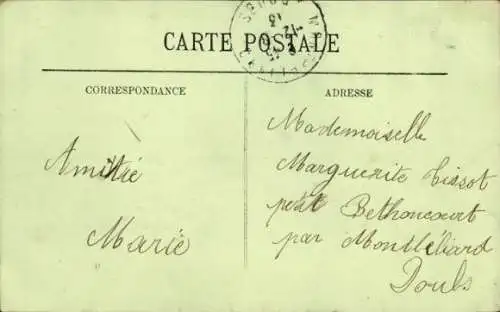 CARTE POSTALE
CORRESPONDANCE
ADRESSE
Amitié
Marie
Mademoiselle
Marguerite Tissot
petit Bethoncourt
par Montbéliard
Doubs